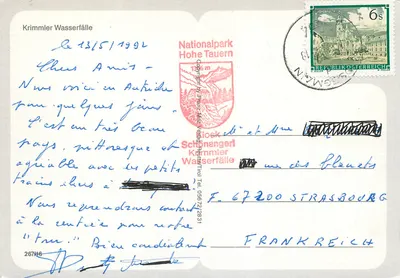 Krimmler Wasserfälle
le 13/5/1992
Chers Amis -
Nous voici en Autriche
pour quelques jours.
C'est un très beau
pays, pittoresque et
agréable avec ses petits
à
Nous reprendrons contact
à la rentrée pour notre
Bien cordialement
Nationalpark
Hohe Tauern
Kiosk
Schönangerl
Krimmler
Wasserfälle
6s
REPUBLIK ÖSTERREICH
M et Mme
rue des
F. 67200 STRASBOURG
FRANKREICH